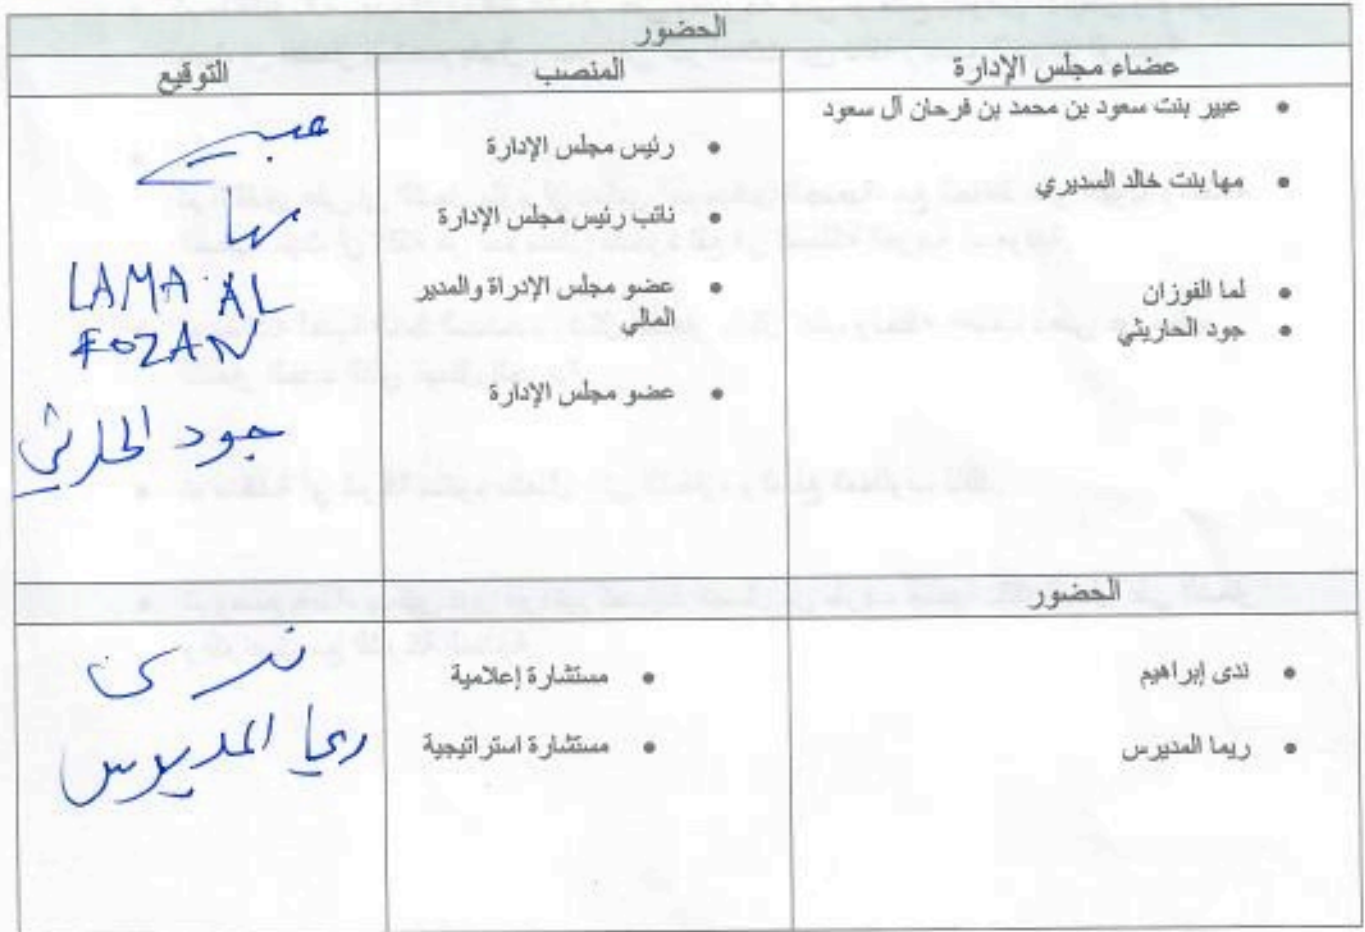 الحضور
عضاء مجلس الإدارة
المنصب
التوقيع
• عبير بنت سعود بن محمد بن فرحان آل سعود
• مها بنت خالد السديري
• لما الفوزان
• جود الحاريثي
• رئيس مجلس الإدارة
• نائب رئيس مجلس الإدارة
• عضو مجلس الإدراة والمدير
المالي
• عضو مجلس الإدارة
عبير
مها
LAMA AL
FOZAN
جود الحارثي
الحضور
• ندى إبراهيم
• ريما المديرس
• مستشارة إعلامية
• مستشارة استراتيجية
ندى
ريما المديرس